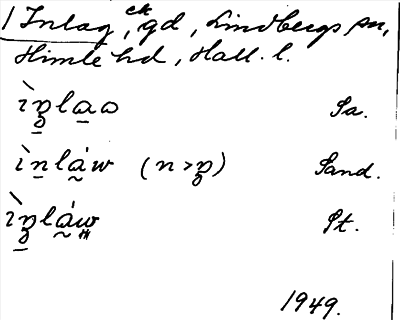 1 Inlag, ck, gd, Lindbergs sn,
Himle hd, Hall. l.
ìn̥la̠ɷ Sa.
ìn̠là̰w (n>n̥) Sand.
ìn̥̠là̰w St.
1949.